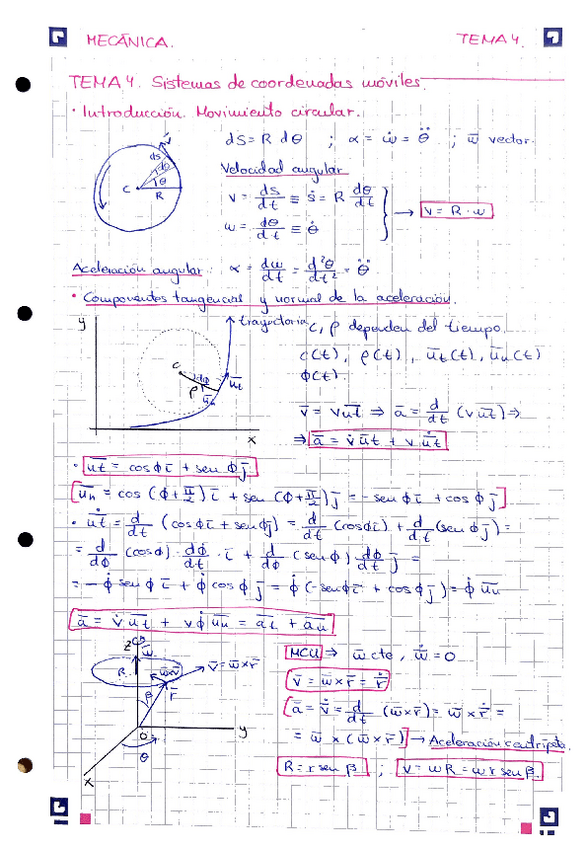 MECÁNICA. TEMA 4.
TEMA 4. Sistemas de coordenadas móviles.
· Introducción. Movimiento circular.
dS = R dθ ; α = ω̇ = θ̈ ; ω̄ vector.
Velocidad angular
v = ds/dt ≡ ṡ = R dθ/dt
ω = dθ/dt ≡ θ̇
→ v = R · ω
dS
dθ
θ
C
R
v̄
Aceleración angular α = dω/dt = d²θ/dt² = θ̈
· Componentes tangencial y normal de la aceleración.
y
trayectoria
c
dϕ
ρ
ūt
ūn
x
c, ρ dependen del tiempo
c(t), ρ(t), ūt(t), ūn(t)
ϕ(t).
v̄ = v ūt ⇒ ā = d/dt (v ūt) ⇒
⇒ ā = v̇ ūt + v u̇̄t
· ūt = cos ϕ ī + sen ϕ j̄
ūn = cos (ϕ + π/2) ī + sen (ϕ + π/2) j̄ = - sen ϕ ī + cos ϕ j̄
· u̇̄t = d/dt (cos ϕ ī + sen ϕ j̄) = d/dt (cos ϕ ī) + d/dt (sen ϕ j̄) =
= d/dϕ (cos ϕ) · dϕ/dt · ī + d/dϕ (sen ϕ) dϕ/dt j̄ =
= - ϕ̇ sen ϕ ī + ϕ̇ cos ϕ j̄ = ϕ̇ (- sen ϕ ī + cos ϕ j̄) = ϕ̇ ūn
ā = v̇ ūt + v ϕ̇ ūn = āt + ān
z
ω̄
R
ω̄×r̄
v̄ = ω̄ × r̄
r̄
β
O
y
θ
x
MCU ⇒ ω̄ cte, ω̄̇ = 0
v̄ = ω̄ × r̄ = ṙ̄
ā = v̄̇ = d/dt (ω̄ × r̄) = ω̄ × ṙ̄ =
= ω̄ × (ω̄ × r̄) → Aceleración centrípeta
R = r sen β ; v = ωR = ω r sen β